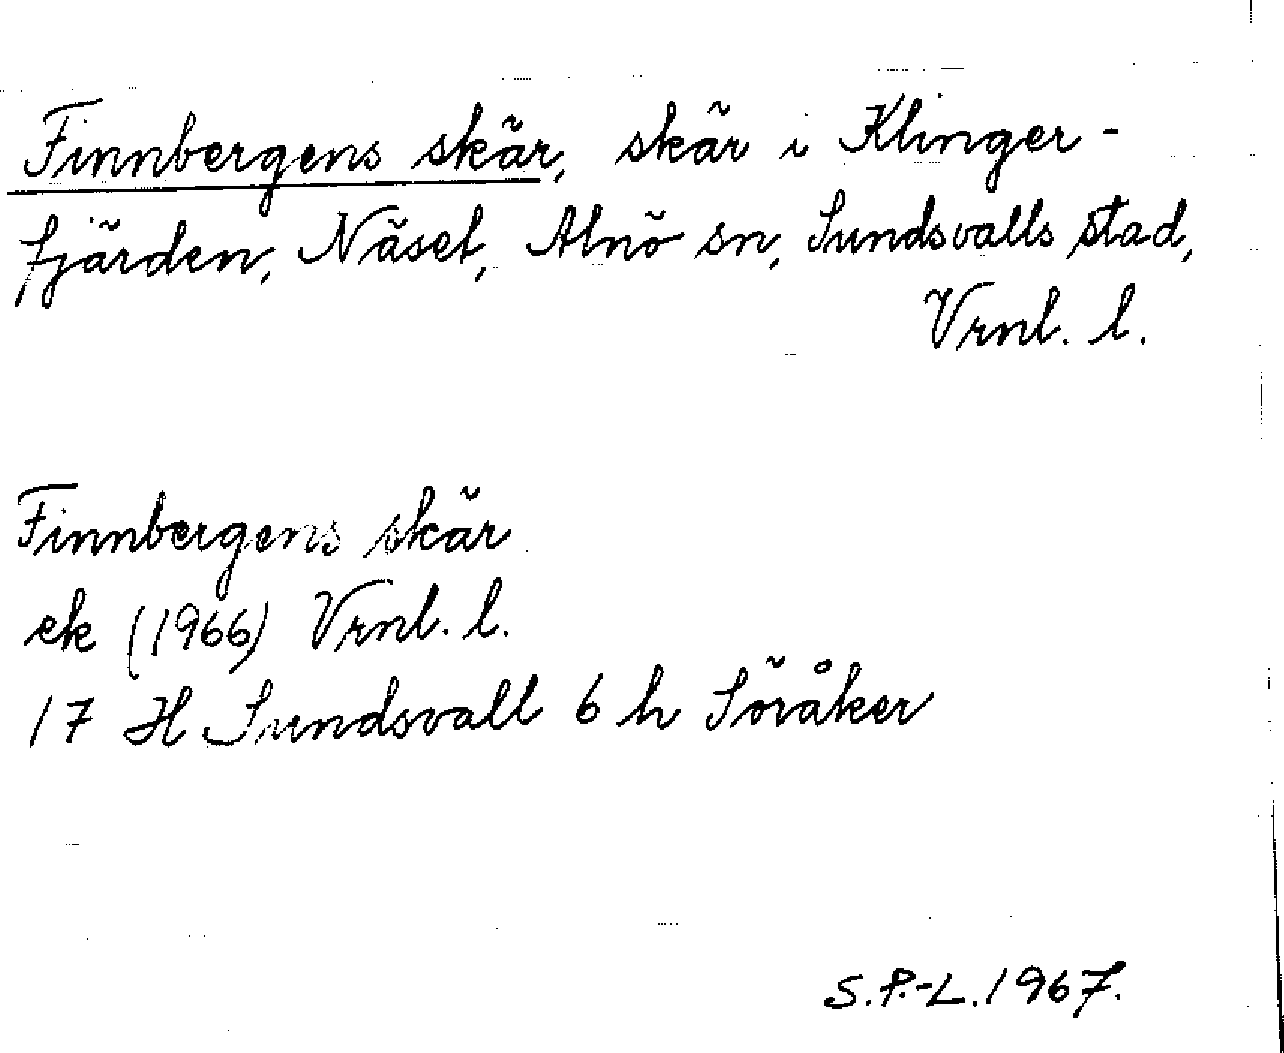 Finnbergens skär, skär i Klinger-
fjärden, Näset, Alnö sn, Sundsvalls stad,
Vrnl. l.
Finnbergens skär
ek (1966) Vrnl. l.
17 H Sundsvall 6 h Söråker
S.P.-L. 1967.